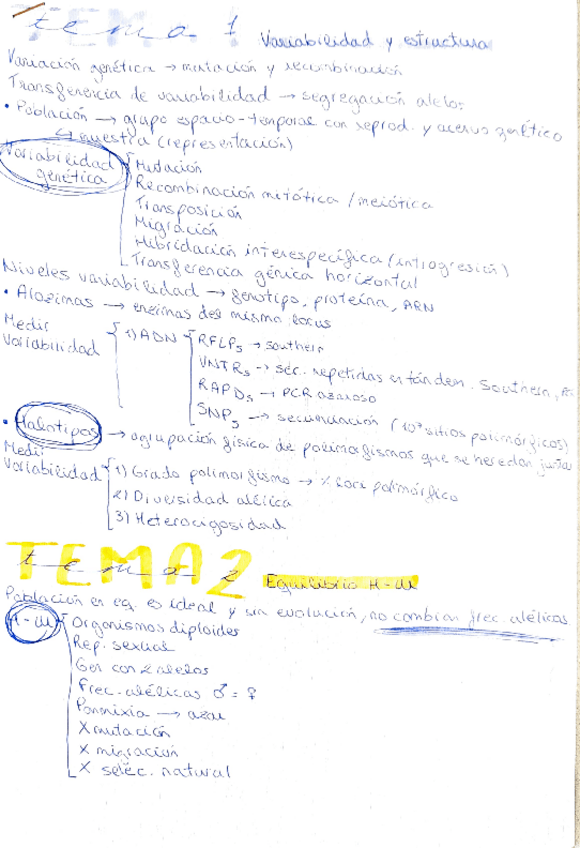 TEMA 1 Variabilidad y estructura
Variación genética → mutación y recombinación
Transferencia de variabilidad → segregación alelos
• Población → grupo espacio-temporal con reprod. y acervo genético
↳ muestra (representación)
Variabilidad genética
Mutación
Recombinación mitótica / meiótica
Transposición
Migración
Hibridación interespecífica (introgresión)
Transferencia génica horizontal
Niveles variabilidad → genotipo, proteína, ARN
• Alozimas → enzimas del mismo locus
Medir variabilidad
1) ADN
RFLPs → Southern
VNTRs → sec. repetidas en tándem. Southern,
RAPDs → PCR azaroso
SNPs → secuenciación (10³ sitios polimórficos)
• Halotipos → agrupación física de polimorfismos que se heredan juntos
Medir variabilidad
1) Grado polimorfismo → % loci polimórfico
2) Diversidad alélica
3) Heterocigosidad
TEMA 2
tema 2 Equilibrio H-W
Población en eq. es ideal y sin evolución, no cambian frec. alélicas
H-W
Organismos diploides
Rep. sexual
Gen con 2 alelos
Frec. alélicas ♂ = ♀
Panmixia → azar
X mutación
X migración
X selec. natural